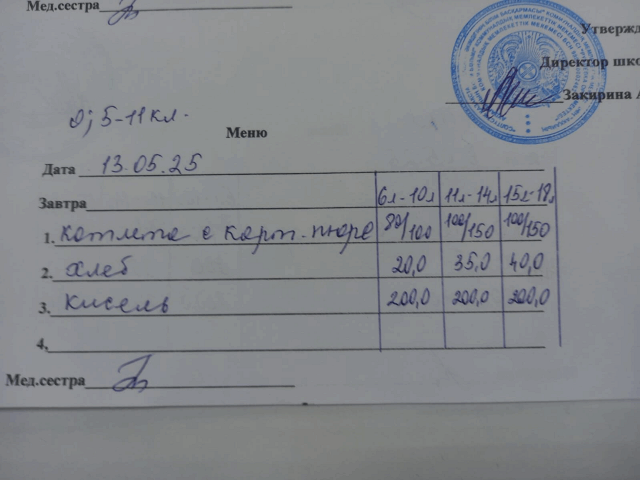 Мед.сестра
Утвержд
Директор шко
Закирина А
0; 5-11 кл.
Меню
Дата 13.05.25
Завтра 6л-10л 11л-14л 15л-18л
1. Котлета с карт. пюре 80/100 100/150 100/150
2. хлеб 20,0 35,0 40,0
3. кисель 200,0 200,0 200,0
4.
Мед.сестра